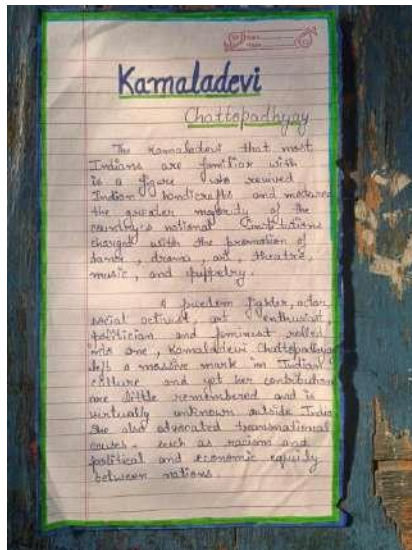 Kamaladevi
Chattopadhyay
The Kamaladevi that most
Indians are familiar with
is a figure who revived
Indian handicrafts and
the greater majority of the
country's national institutions
charged with the promotion of
dance, drama, art, theatre,
music, and puppetry.
A freedom fighter, actor,
social activist, art enthusiast,
politician and feminist rolled
into one, Kamaladevi Chattopadhyay
left a massive mark on Indian
culture and yet her contribution
are little remembered and is
virtually unknown outside India
She also advocated transnational
causes. such as racism and
political and economic equity
between nations.